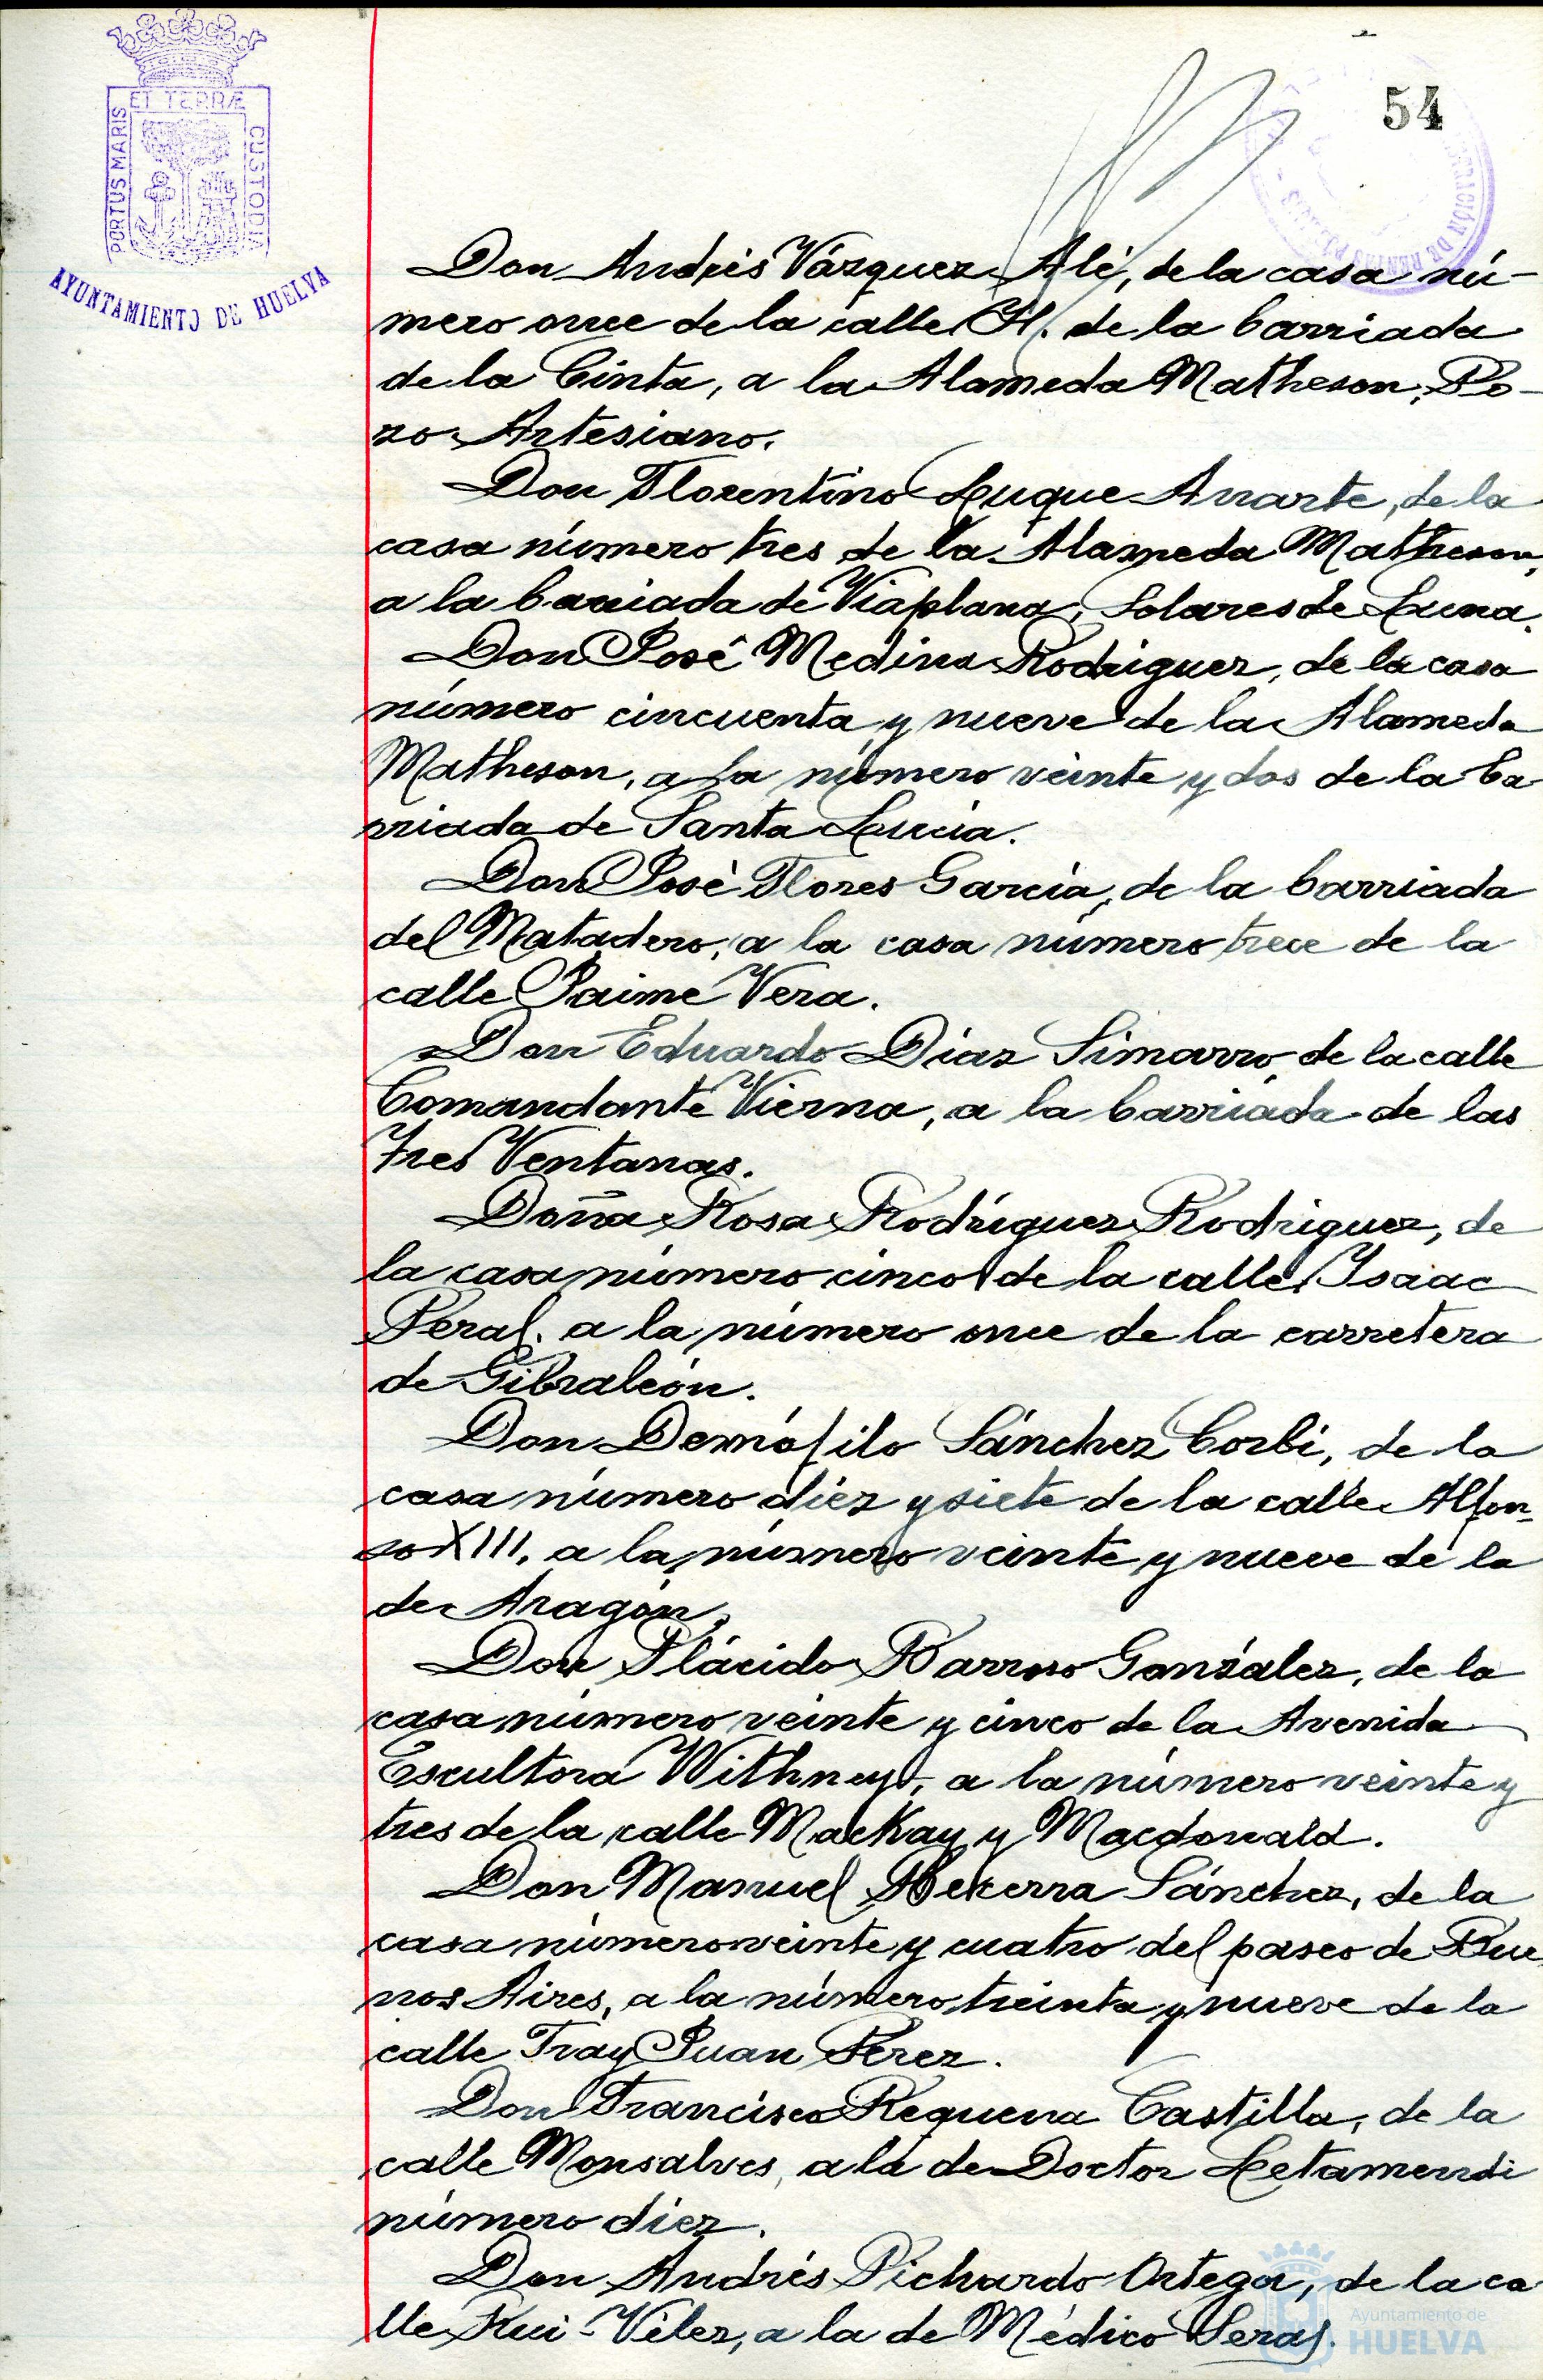 54
ET TERRÆ
PORTUS MARIS
CUSTODIA
AYUNTAMIENTO DE HUELVA
Don Andrés Vázquez Alé, de la casa nú-
mero once de la calle H. de la barriada
de la Cinta, a la Alameda Matheson, Po-
zo Artesiano.
Don Florentino Luque Arrarte, de la
casa número tres de la Alameda Matheson,
a la barriada de Viaplana, Solares de Luna.
Don José Medina Rodriguez, de la casa
número cincuenta y nueve de la Alameda
Matheson, a la número veinte y dos de la ba
rriada de Santa Lucia.
Don José Flores García, de la barriada
del Matadero, a la casa número trece de la
calle Jaime Vera.
Don Eduardo Diaz Simarro, de la calle
Comandante Vierna, a la barriada de las
Tres Ventanas.
Doña Rosa Rodríguez Rodriguez, de
la casa número cinco de la calle Isaac
Peral, a la número once de la carretera
de Gibraleón.
Don Demófilo Sánchez Corbi, de la
casa número diez y siete de la calle Alfon-
so XIII, a la número veinte y nueve de la
de Aragón.
Don Plácido Barroso González, de la
casa número veinte y cinco de la Avenida
Escultora Withney, a la número veinte y
tres de la calle MacKay y Macdonald.
Don Manuel Becerra Sánchez, de la
casa número veinte y cuatro del paseo de Bue
nos Aires, a la número treinta y nueve de la
calle Fray Juan Pérez.
Don Francisco Requena Castilla, de la
calle Monsalves, a la de Doctor Letamendi
número diez.
Don Andrés Pichardo Ortega, de la ca
lle Rui-Vélez, a la de Médico Seras.
Ayuntamiento de
HUELVA